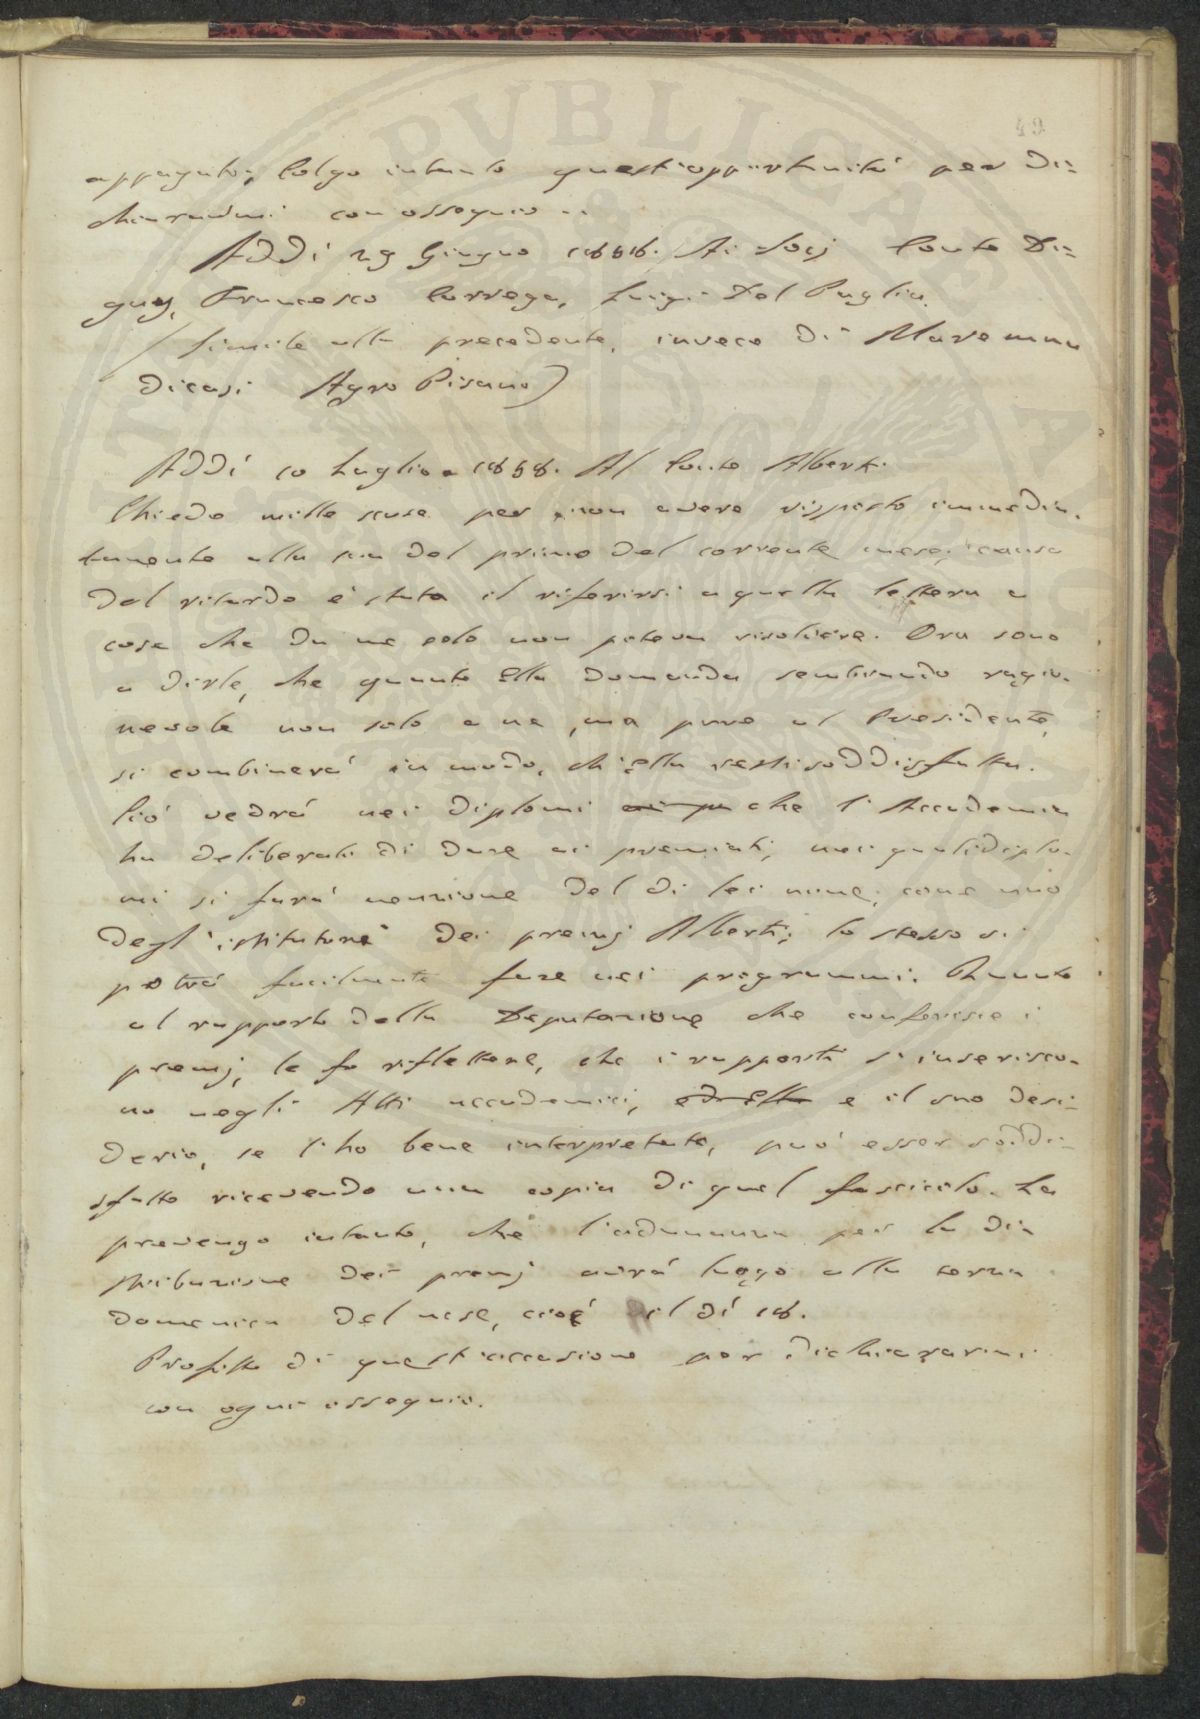 appagato; Colgo intanto quest'opportunità per di=
chiararmi con ossequio ..
Addì 29 Giugno 1858. Ai Socj Conte Di=
guy, Francesco Correga, Luigi Del Puglia.
(simile alla precedente, invece di Maremma
dicasi Agro Pisano)
Addì 10 Luglio 1858. Al Conte Alberti.
Chiedo mille scuse per non avere risposto immedia-
tamente alla sua del primo del corrente mese; causa
del ritardo è stata il riferirsi a quella lettera a
cose che da me solo non poteva risolvere. Ora sono
a dirle, che quanto Ella domanda sembrando ragio-
nevole non solo a me, ma pure al Presidente,
si combinerà in modo, ch'Ella resti soddisfatta.
Ciò vedrà nei diplomi che l'Accademia
ha deliberato di dare ai premiati, nei quali diplo-
mi si farà menzione del di lei nome, come uno
degl'istitutori dei premj Alberti; lo stesso si
potrà facilmente fare nei programmi. Quanto
al rapporto della Deputazione che conferisce i
premj, le fo riflettere, che i rapporti si inserisco-
no negli Atti accademici, e il suo desi-
derio, se l'ho bene interpretato, può esser soddi-
sfatto ricevendo una copia di quel fascicolo. La
prevengo intanto, che l'adunanza per la di-
stribuzione dei premj avrà luogo alla terza
domenica del mese, cioè il dì 18.
Profitto di quest'occasione per dichiararmi
con ogni ossequio.